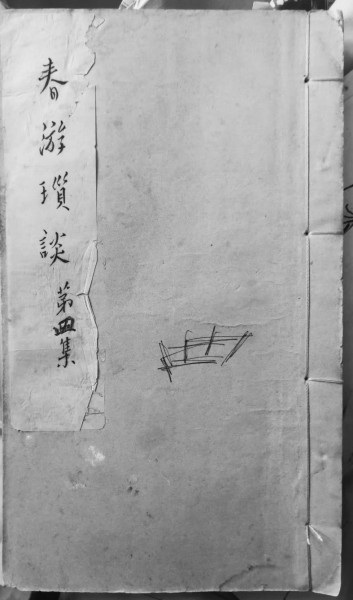 春游瑣談 第四集
四